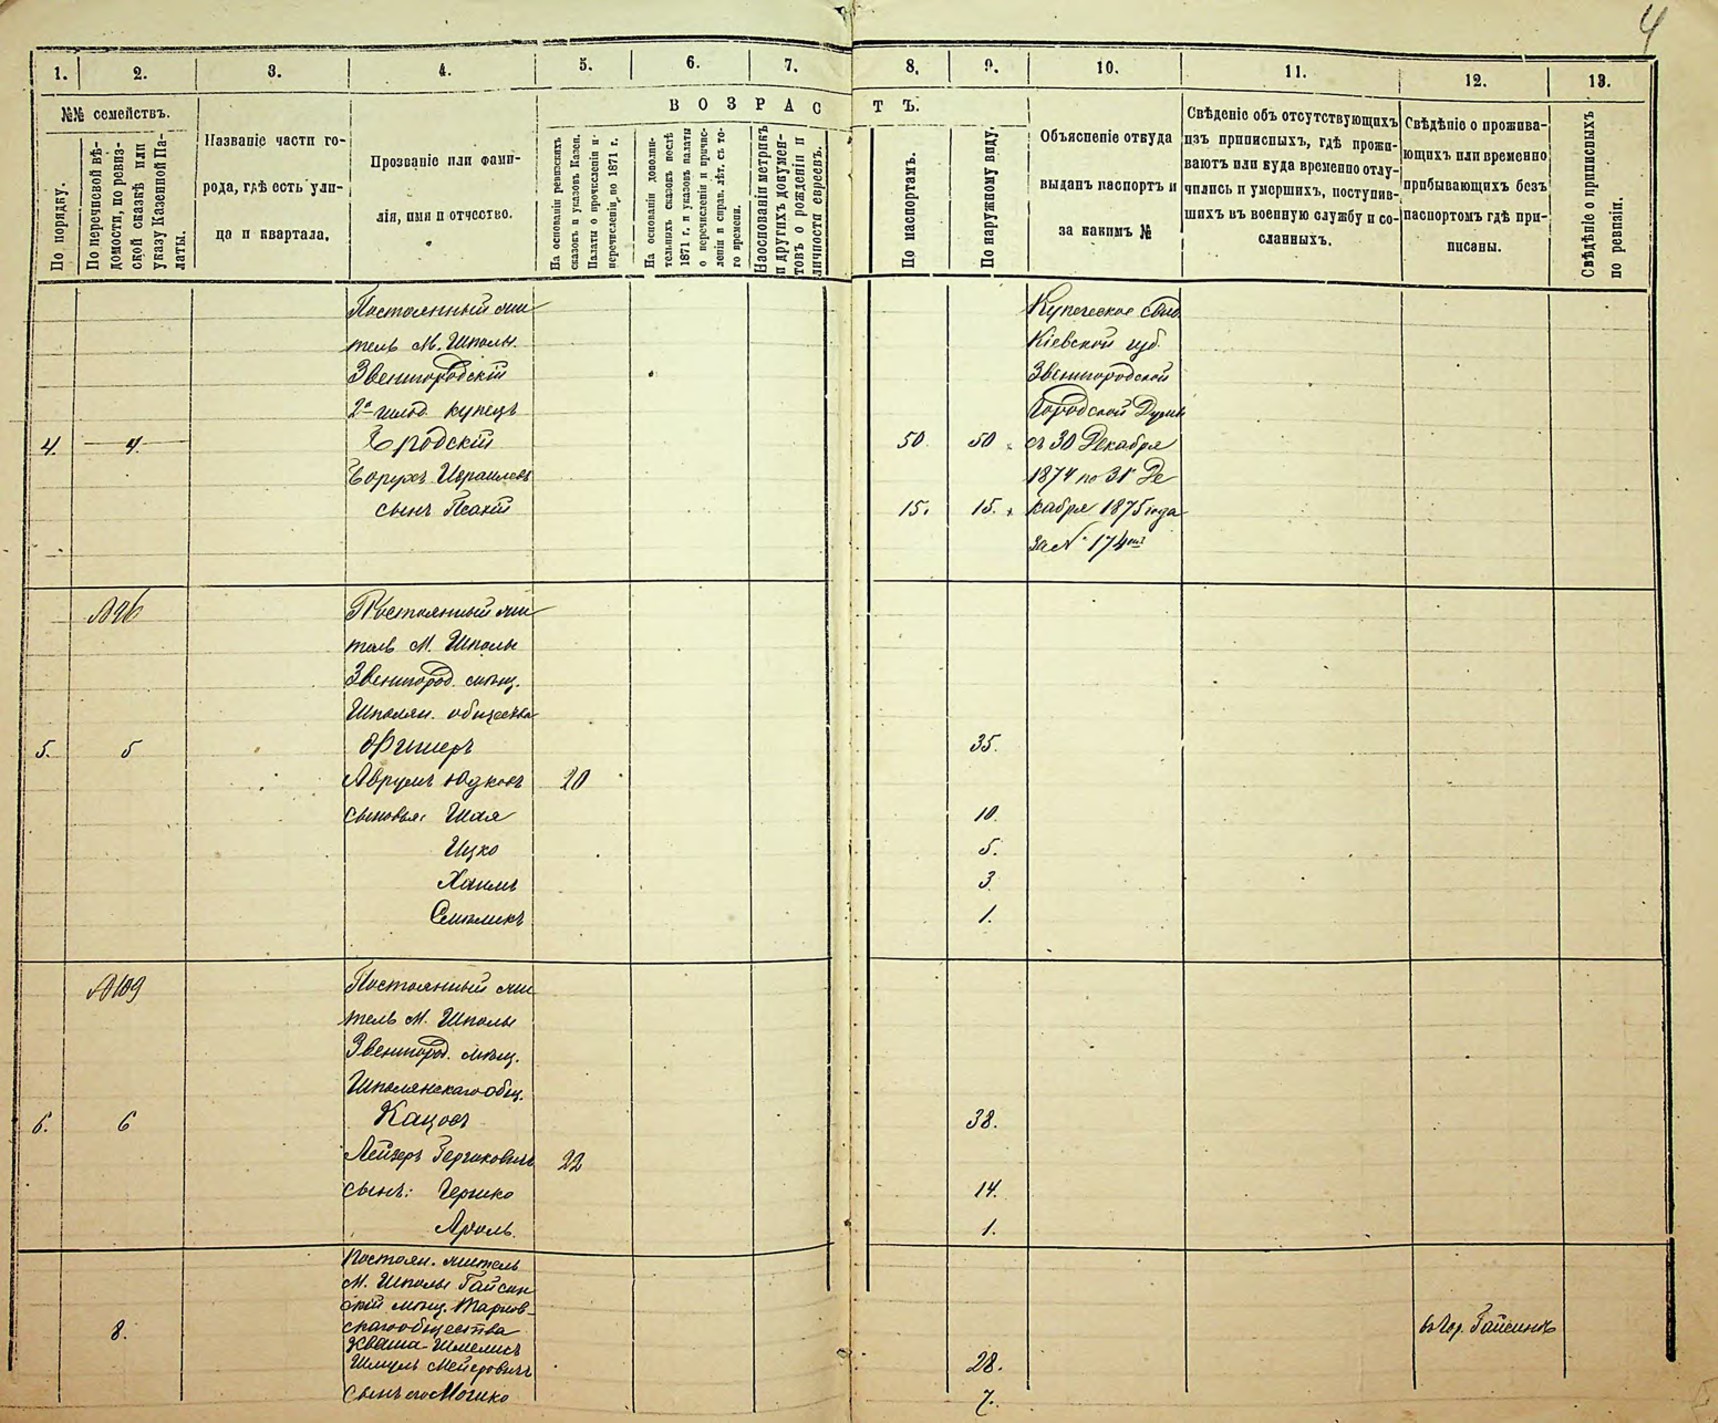 4
1. 2. 3. 4. 5. 6. 7. 8. 9. 10. 11. 12. 13.
№№ семействъ.
По порядку.
По перечневой вѣ-
домости, по ревиз-
ской сказкѣ или
указу Казенной Па-
латы.
Названіе части го-
рода, гдѣ есть ули-
ца и квартала.
Прозваніе или фами-
лія, имя и отчество.
ВОЗРАСТЪ.
На основаніи ревизскихъ
сказокъ и указовъ Казен.
Палаты о прочисленіи и
перечисленіи, по 1871 г.
На основаніи дополни-
тельныхъ сказокъ послѣ
1871 г. и указовъ палаты
о перечисленіи и причис-
леніи и справ. лѣт. съ то-
го времени.
Наоснованіи метрикъ
и другихъ докумен-
товъ о рожденіи и
личности евреевъ.
По паспортамъ.
По наружному виду.
Объясненіе откуда
выданъ паспортъ и
за какимъ №
Свѣденіе объ отсутствующихъ
изъ приписныхъ, гдѣ прожи-
ваютъ или куда временно отлу-
чились и умершихъ, поступив-
шихъ въ военную службу и со-
сланныхъ.
Свѣдѣніе о прожива-
ющихъ или временно
прибывающихъ безъ
паспортомъ гдѣ при-
писаны.
Свѣдѣніе о приписныхъ
по ревизіи.
Постоянный жи
Купеческое свид
тель М. Шполы.
Кіевской губ.
Звенигородскій
Звенигородской
2й гильд. купецъ
Городской Думы
4. 4. Бродскій 50. 50. съ 30 Декабря
Борухъ Израилевъ 1874 по 31 Де
сынъ Исакій 15. 15. кабря 1875 года
за № 174
Постоянный жи
тель М. Шполы
Звенигород. мѣщ.
Шполян. общества
5. 5 Фишеръ 35.
Аврумъ Юдковъ 20
сыновья: Шая 10.
Ицко 5.
Хаимъ 3
1.
№109 Постоянный жи
тель М. Шполы
Звенигород. мѣщ.
Шполянскаго общ.
6. 6 Кацовъ 38.
Лейзеръ Гершковичъ 22
сынъ: Гершко 14.
Ароль. 1.
Постоян. житель
М. Шполы Гайсин
скій мѣщ. Тарнов-
8. скаго общества въ гор. Гайсинѣ
Шмуль Мейеровичъ 28.
сынъ его Мошко 7.